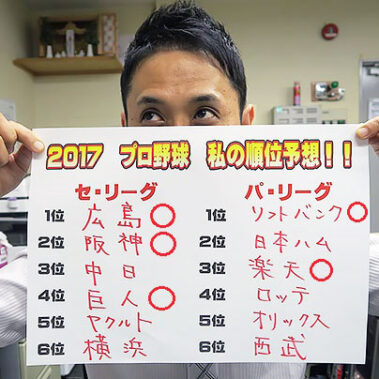 2017 プロ野球 私の順位予想!!
セ・リーグ パ・リーグ
1位 広島 ○ 1位 ソフトバンク ○
2位 阪神 ○ 2位 日本ハム
3位 中日 3位 楽天 ○
4位 巨人 ○ 4位 ロッテ
5位 ヤクルト 5位 オリックス
6位 横浜 6位 西武